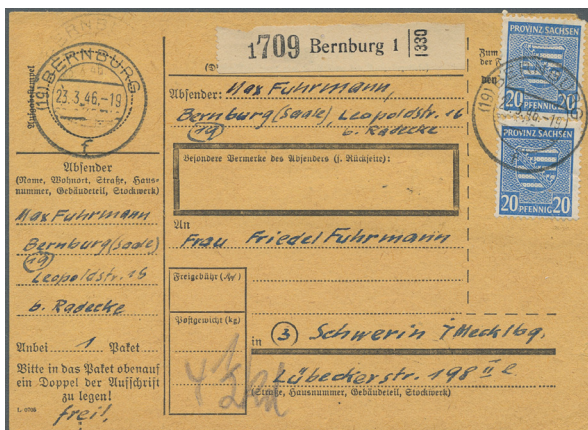 BERNBURG
(19) BERNBURG
23.3.46.-19
f
Aufgabestempel
Absender
(Name, Wohnort, Straße, Haus-
nummer, Gebäudeteil, Stockwerk)
Max Fuhrmann
Bernburg (Saale)
(19)
Leopoldstr. 16
b. Radecke
Anbei 1 Paket
Bitte in das Paket obenauf
ein Doppel der Aufschrift
zu legen!
frei!
1709 Bernburg 1
1330
Absender: Max Fuhrmann,
Bernburg (Saale), Leopoldstr. 16
(19) b. Radecke
Besondere Vermerke des Absenders (s. Rückseite):
An
Frau Friedel Fuhrmann
Freigebühr
Postgewicht (kg)
in (3) Schwerin i Mecklbg.
Lübeckerstr. 198 II
(Straße, Hausnummer, Gebäudeteil, Stockwerk)
Zum
PROVINZ SACHSEN
20 20
PFENNIG
PROVINZ SACHSEN
20 20
PFENNIG
(19)